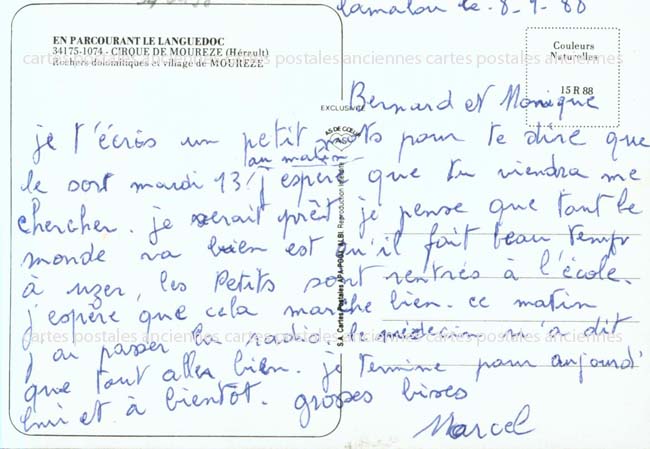 Lamalou le. 8-9-88
EN PARCOURANT LE LANGUEDOC
34175-1074 - CIRQUE DE MOUREZE (Hérault)
Rochers dolomitiques et village de MOUREZE
Couleurs
Naturelles
15 R 88
EXCLUSIVITÉ
AS DE CŒUR
S.A. Cartes Postales APA-POUX ALBI Reproduction
Bernard et Monique
je t'écris un petit mots pour te dire que
au matin
le sort mardi 13 j'espère que tu viendra me
chercher. je serait prêt je pense que tout le
monde va bien est qu'il fait beau temps
à uzer, les Petits sont rentrés à l'école.
j'espère que cela marche bien. ce matin
j'ai passer la radio le médecin m'a dit
que tout aller bien. je termine pour aujourd'
hui et à bientôt. grosses bises
Marcel
cartes postales anciennes cartes postales anciennes cartes postales anciennes
cartes postales anciennes cartes postales anciennes cartes postales anciennes